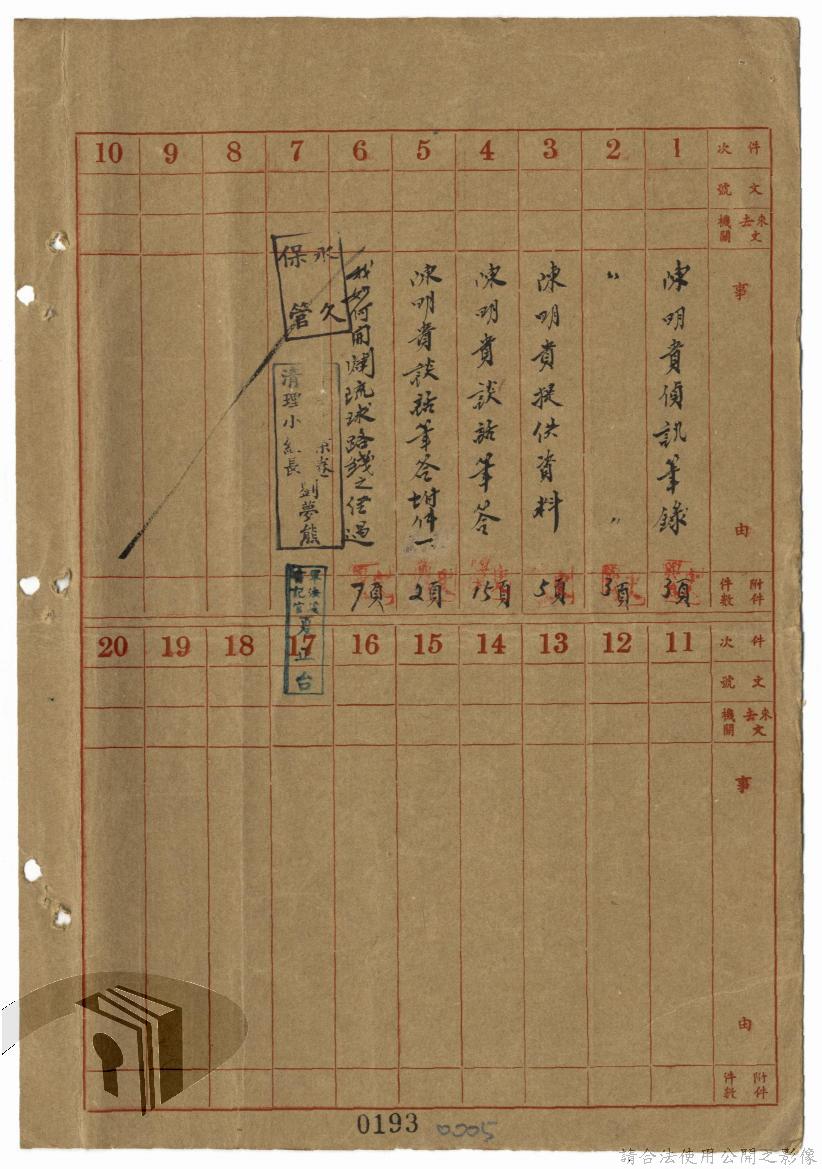 件次 1 2 3 4 5 6 7 8 9 10
文號
來去文機關
事由
陳明貴偵訊筆錄
〃 〃
陳明貴提供資料
陳明貴談話筆答
陳明貴談話筆答附件一
我如何開闢琉球路綫之經過
永久保管
清理小組長 劉夢熊
書記官 夏正台
附件件數
3頁
3頁
5頁
15頁
2頁
7頁
件次 11 12 13 14 15 16 17 18 19 20
文號
來去文機關
事由
附件件數
0193
0005
請合法使用公開之影像